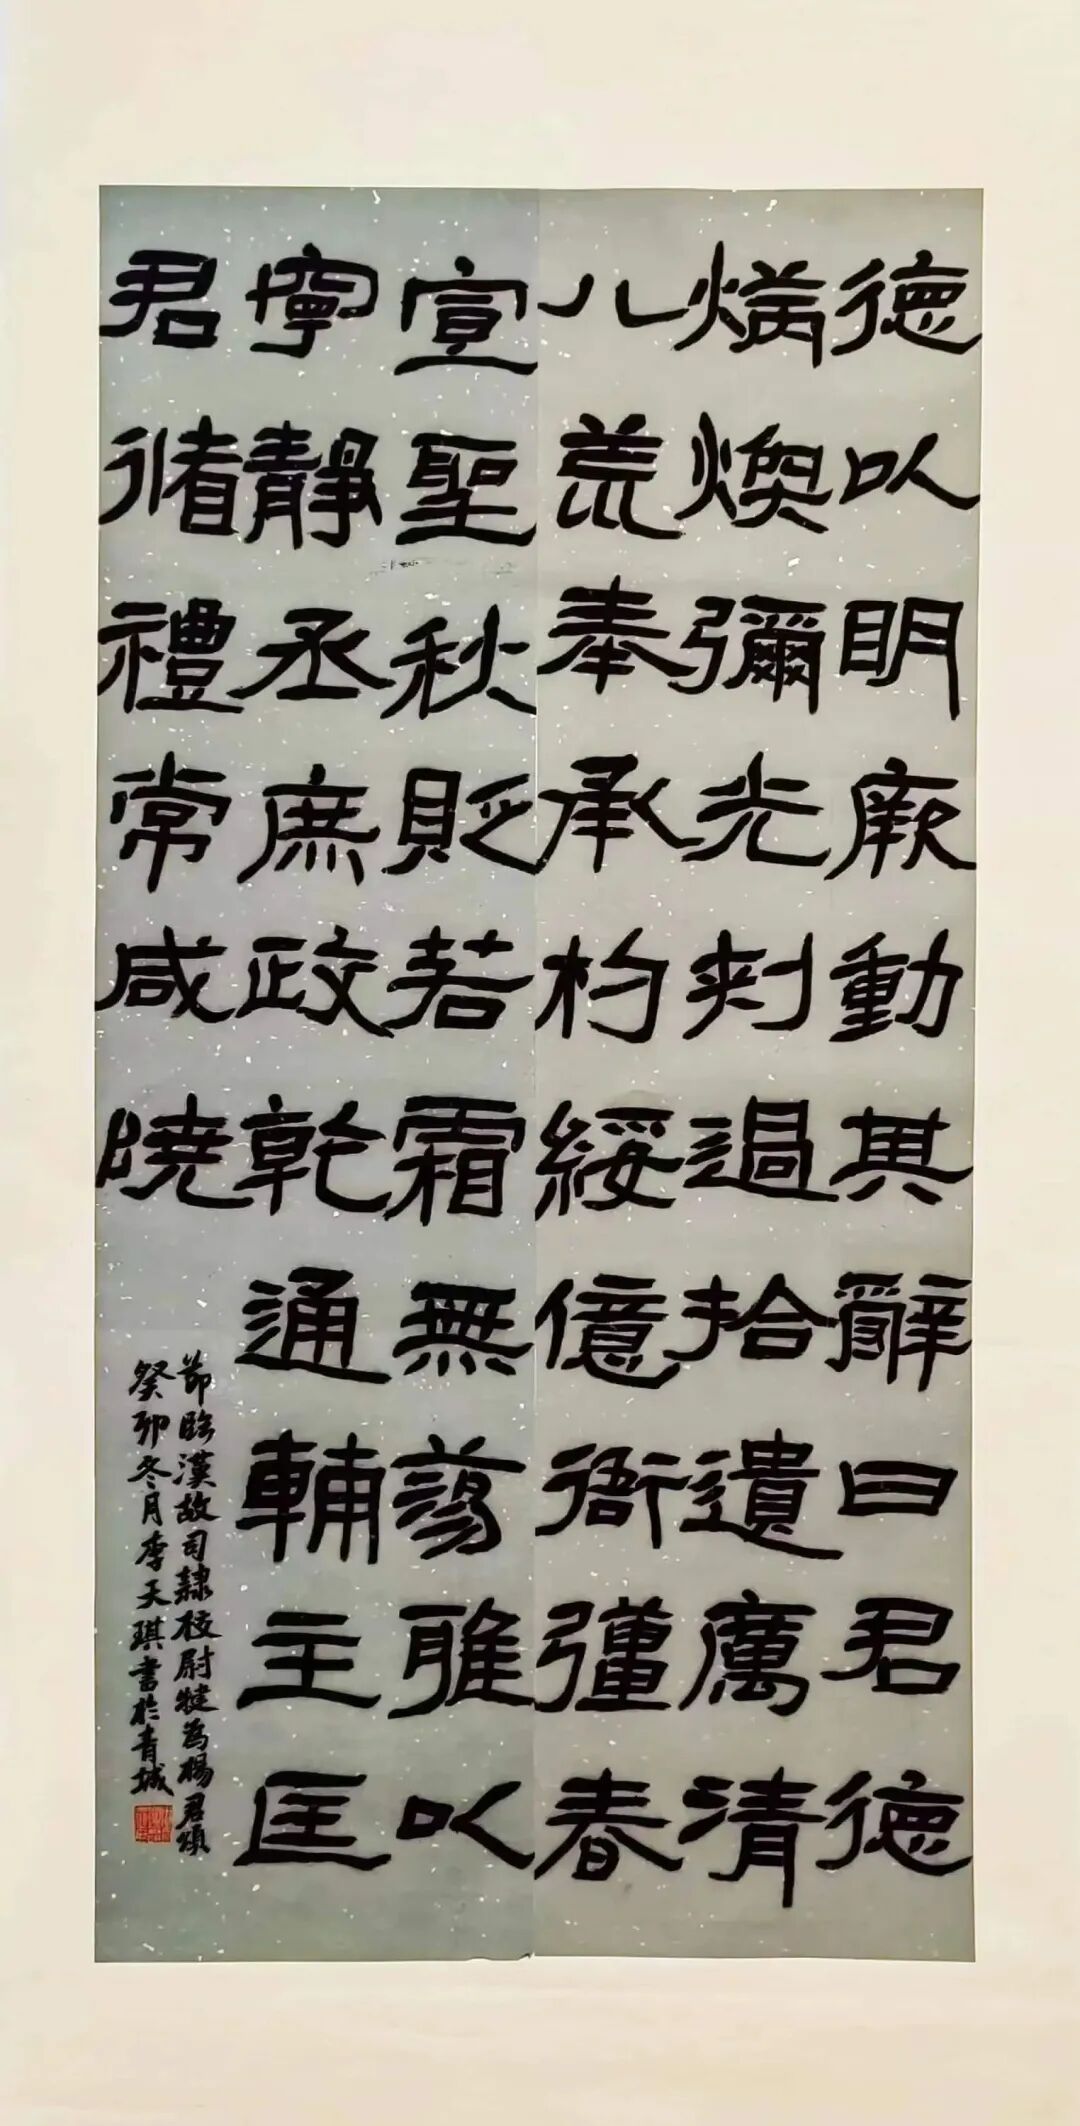 德以明厥勳其辭曰君德
煥煥彌光刾過拾遺厲清
八荒奉承杓綏億衙彊春
宣聖秋貶若霜無蕩雖以
寧靜烝庶政乾通輔主匡
君脩禮常咸曉
節臨漢故司隸校尉犍為楊君頌
癸卯冬月李天琪書於青城